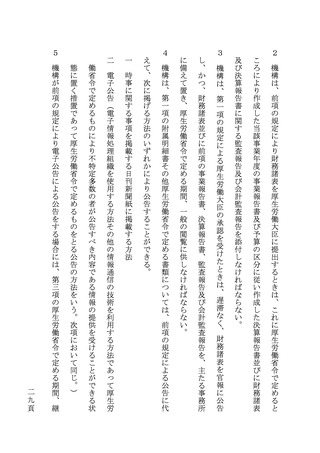 ２　機構は、前項の規定により財務諸表を厚生労働大臣に提出するときは、これに厚生労働省令で定めると
ころにより作成した当該事業年度の事業報告書及び予算の区分に従い作成した決算報告書並びに財務諸表
及び決算報告書に関する監査報告及び会計監査報告を添付しなければならない。
３　機構は、第一項の規定による厚生労働大臣の承認を受けたときは、遅滞なく、財務諸表を官報に公告
し、かつ、財務諸表並びに前項の事業報告書、決算報告書、監査報告及び会計監査報告を、主たる事務所
に備えて置き、厚生労働省令で定める期間、一般の閲覧に供しなければならない。
４　機構は、第一項の附属明細書その他厚生労働省令で定める書類については、前項の規定による公告に代
えて、次に掲げる方法のいずれかにより公告することができる。
一　時事に関する事項を掲載する日刊新聞紙に掲載する方法
二　電子公告（電子情報処理組織を使用する方法その他の情報通信の技術を利用する方法であって厚生労
働省令で定めるものにより不特定多数の者が公告すべき内容である情報の提供を受けることができる状
態に置く措置であって厚生労働省令で定めるものをとる公告の方法をいう。次項において同じ。）
５　機構が前項の規定により電子公告による公告をする場合には、第三項の厚生労働省令で定める期間、継
二九頁